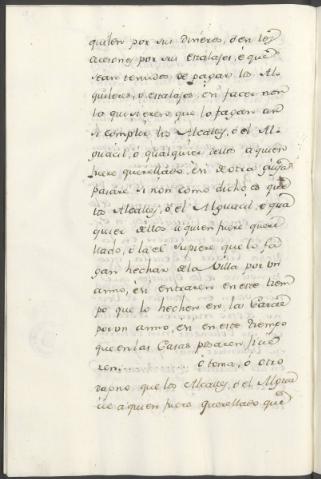 quilen por sus Dineros, ó en los
acesiones por sus estalajes, é que
sean tenudos de pagar los Al-
quileres, o estalajes, en facer non
lo quisieren que lo fagan an
si complir los Alcalles, ó el Al-
guacil, o qualquier dellos a quien
fuere querellado, e si de otra guisa
pasare si non como dicho es que
los Alcalles, ó el Alguacil, e qual
quier dellos a quien fuere quere
llado, o la el supiere que lo fa
gan hechar de la Villa por un
anno, e si entraren en este tiem
po que lo hechen en la Carcel
por un anno, en en este tiempo
que en las Casas posaren fue
ren o toma, o otro
que los Alcalles, o el Algua
cil a quien fuere Querellado que